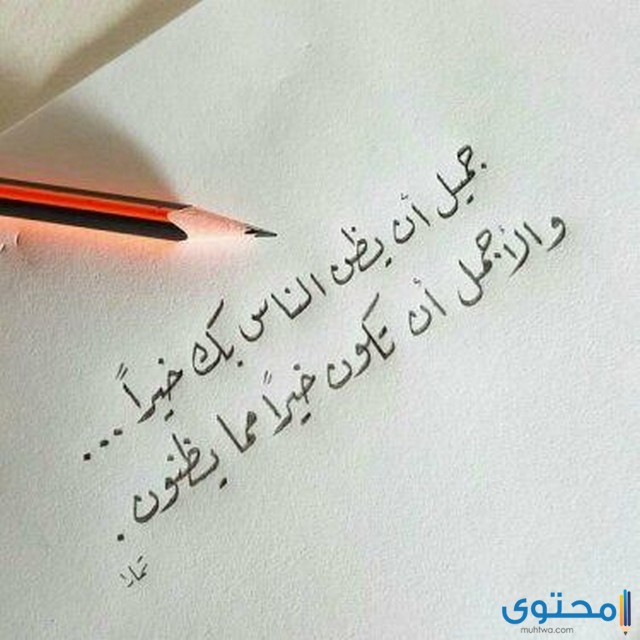 جميل أن يظن الناس بك خيراً...
والأجمل أن تكون خيراً مما يظنون.
محتوى
muhtwa.com